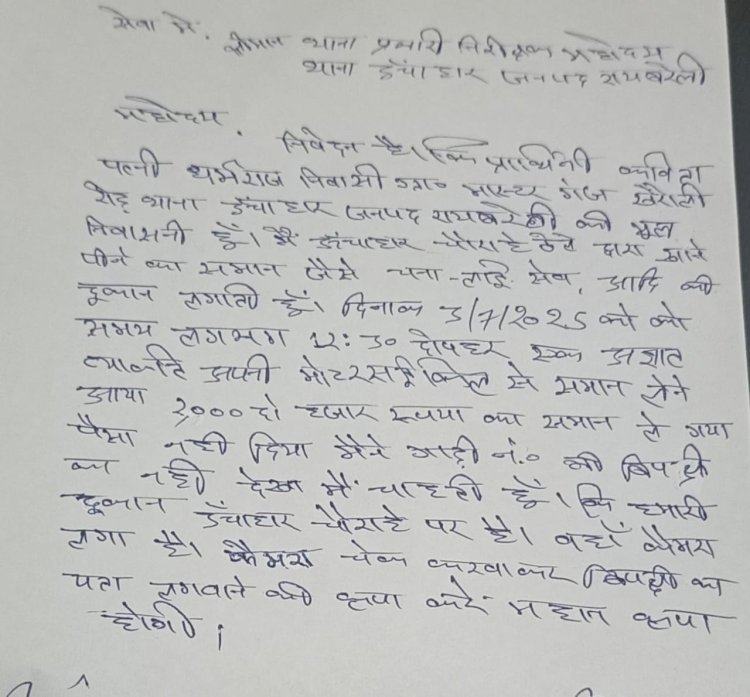 सेवा में,
श्रीमान थाना प्रभारी निरीक्षक महोदय
थाना ऊँचाहार जनपद रायबरेली
महोदय,
निवेदन है। कि प्रार्थिनी कविता
पत्नी धर्मराज निवासी ग्रा० मास्टर गंज खरौली
रोड थाना ऊँचाहार जनपद रायबरेली की मूल
निवासनी हूँ। मैं ऊंचाहार चौराहे ठेले द्वारा खाने
पीने का समान जैसे चना-लाई सेव, आदि की
दुकान लगाती हूँ। दिनाक 3/7/2025 को को
समय लगभग 12:30 दोपहर एक अज्ञात
व्यक्ति अपनी मोटरसाईकिल से समान लेने
आया 2,000 दो हजार रूपया का समान ले गया
पैसा नही दिया मैने गाड़ी नं.० भी बिपक्षी
का नही देखा मैं चाहती हूँ। कि हमारी
दुकान ऊँचाहार चौराहे पर है। वहाँ कैमरा
लगा है। कैमरा चेक करवाकर बिपक्षी का
पता लगवाने की कृपा करें महान कृपा
होगी।